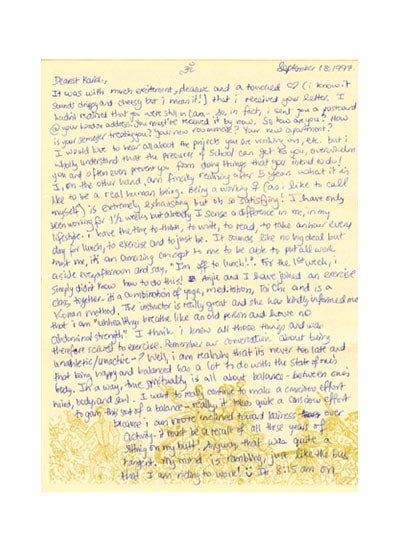 ॐ September 18, 1997.
Dearest
It was with much excitement, pleasure and a touched ♡ (i know it
sounds drippy and cheesy but i mean it!) that i received your letter. I
hadn't realized that you were still in so, in fact, i sent you a postcard
@ your address. You must've received it by now. So how are you? How
is your semester treating you? Your new roommate? Your new apartment?
I would love to hear all about the projects you are working on, etc. but i
wholly understand that the pressures of school can get to you, overwhelm
you and often even prevent you from doing things that you intend to do!
I, on the other hand, am finally realizing after 5 years what it is
like to be a real human being. Being a working (as i like to call
myself) is extremely exhausting but oh so satisfying! I have only
been working for 1½ weeks but already I sense a difference in me, in my
lifestyle. I have the time to think, to write, to read, to take an hour every
day for lunch, to exercise and to just be. It sounds like no big deal but
trust me, it's an amazing concept to me to be able to put all work
aside every afternoon and say, "I'm off to lunch!". For the 1st week, i
simply didn't know how to do this! Angie and I have joined an exercise
class together. it's a combination of yoga, meditation, Tai Chi and is a
Korean method. The instructor is really great and she has kindly informed me
that i am "unhealthy: breathe like an old person and have no
abdominal strength". I think i knew all those things and was
therefore scared to exercise. Remember our conversation about being
unathletic/unactive-? Well, i am realizing that its never too late and
that being happy and balanced has a lot to do with the state of one's
body. In a way, true spirituality is all about balance - between one's
mind, body and soul. I want to really continue to make a conscious effort
to gain this sort of a balance - really, it takes quite a conscious effort
because i am more inclined toward laziness over
activity - it must be a result of all these years of
sitting on my butt! Anyway, that was quite a
tangent. my mind is rambling, just like the bus
that I am riding to work! ☺ It 8:15 am on